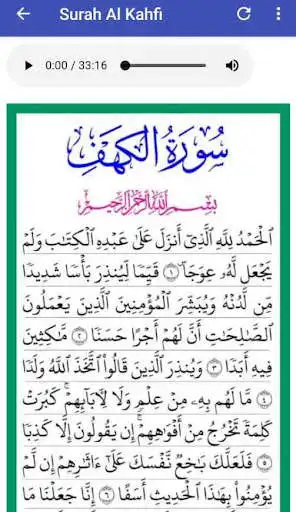 Surah Al Kahfi
0:00 / 33:16
سُورَةُ الْكَهْفِ
بِسْمِ اللَّهِ الرَّحْمَٰنِ الرَّحِيمِ
الْحَمْدُ لِلَّهِ الَّذِي أَنزَلَ عَلَىٰ عَبْدِهِ الْكِتَٰبَ وَلَمْ
يَجْعَل لَّهُۥ عِوَجَا ۜ ١ قَيِّمًا لِّيُنذِرَ بَأْسًا شَدِيدًا
مِّن لَّدُنْهُ وَيُبَشِّرَ الْمُؤْمِنِينَ الَّذِينَ يَعْمَلُونَ
الصَّٰلِحَٰتِ أَنَّ لَهُمْ أَجْرًا حَسَنًا ٢ مَّٰكِثِينَ
فِيهِ أَبَدًا ٣ وَيُنذِرَ الَّذِينَ قَالُوا اتَّخَذَ اللَّهُ وَلَدًا
٤ مَّا لَهُم بِهِۦ مِنْ عِلْمٍ وَلَا لِآبَآئِهِمْ ۚ كَبُرَتْ
كَلِمَةً تَخْرُجُ مِنْ أَفْوَٰهِهِمْ ۚ إِن يَقُولُونَ إِلَّا كَذِبًا
٥ فَلَعَلَّكَ بَٰخِعٌ نَّفْسَكَ عَلَىٰٓ ءَاثَٰرِهِمْ إِن لَّمْ
يُؤْمِنُوا بِهَٰذَا الْحَدِيثِ أَسَفًا ٦ إِنَّا جَعَلْنَا مَا